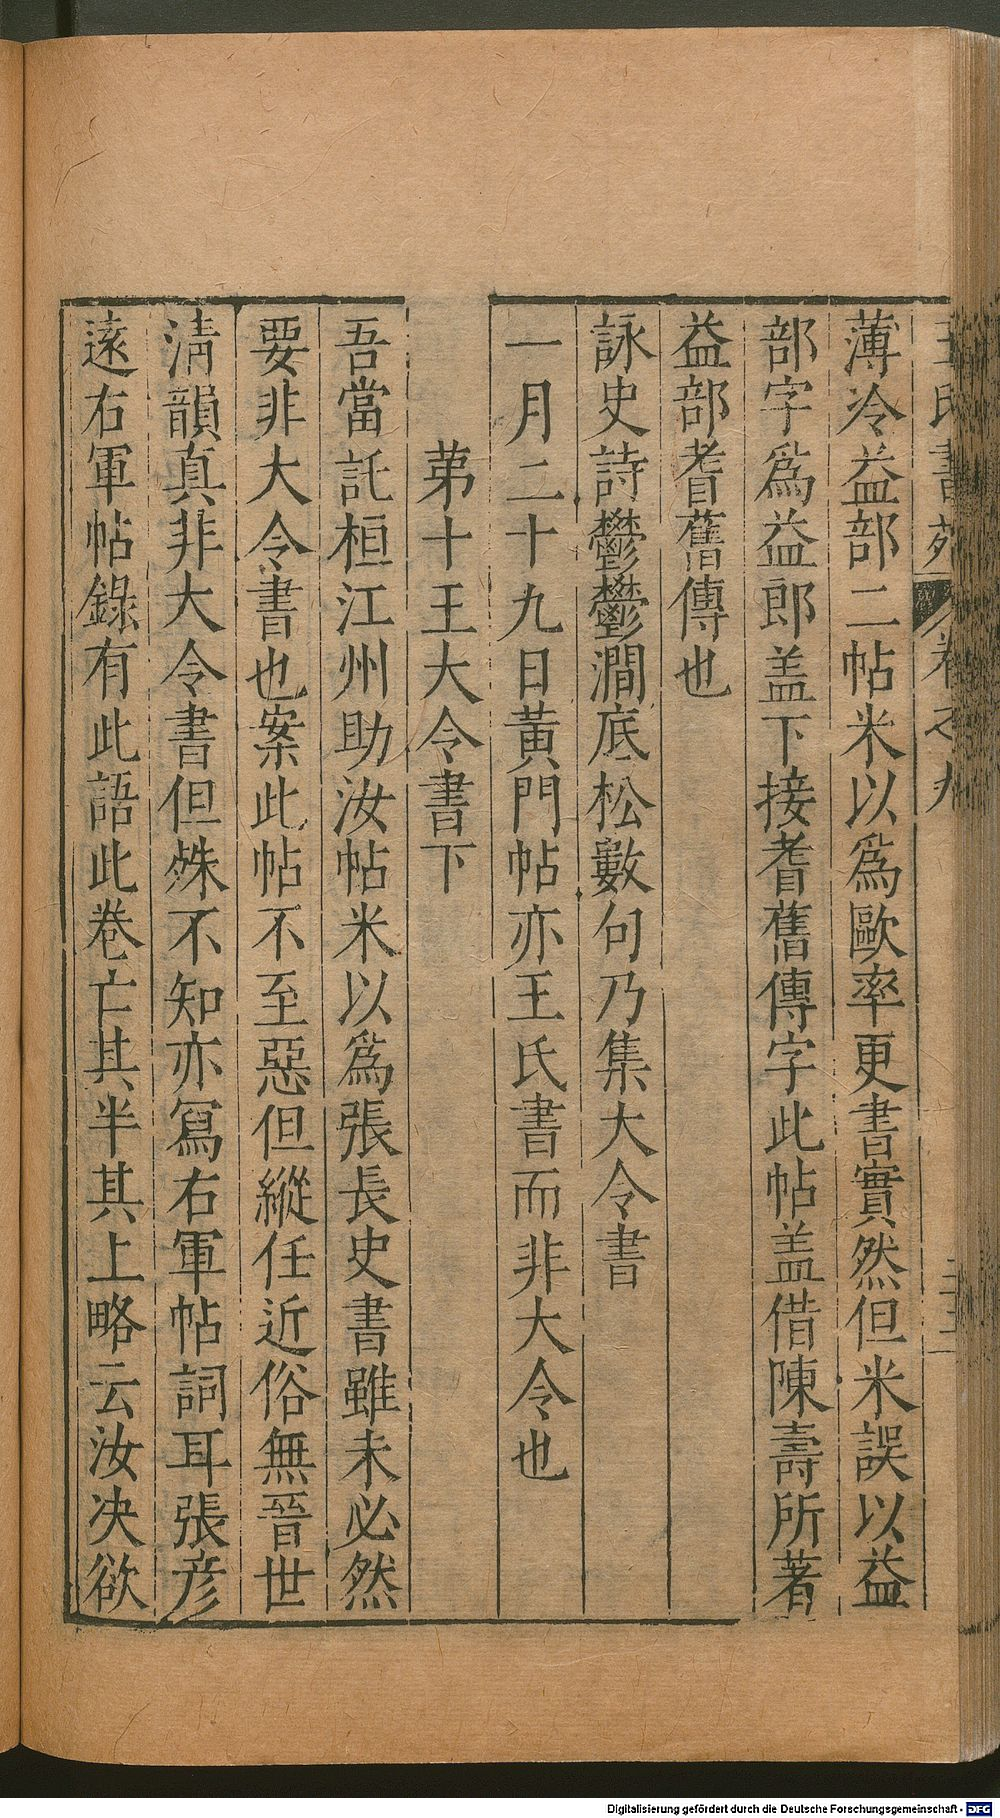 王氏書苑 卷之九
薄冷益部二帖米以爲歐率更書實然但米誤以益
部字爲益郎盖下接耆舊傳字此帖盖借陳壽所著
益部耆舊傳也
詠史詩鬱鬱澗底松數句乃集大令書
一月二十九日黃門帖亦王氏書而非大令也
苐十王大令書下
吾當託桓江州助汝帖米以爲張長史書雖未必然
要非大令書也案此帖不至惡但縱任近俗無晉世
清韻真非大令書但殊不知亦冩右軍帖詞耳張彦
遠右軍帖錄有此語此卷亡其半其上略云汝决欲
Digitalisierung gefördert durch die Deutsche Forschungsgemeinschaft - DFG